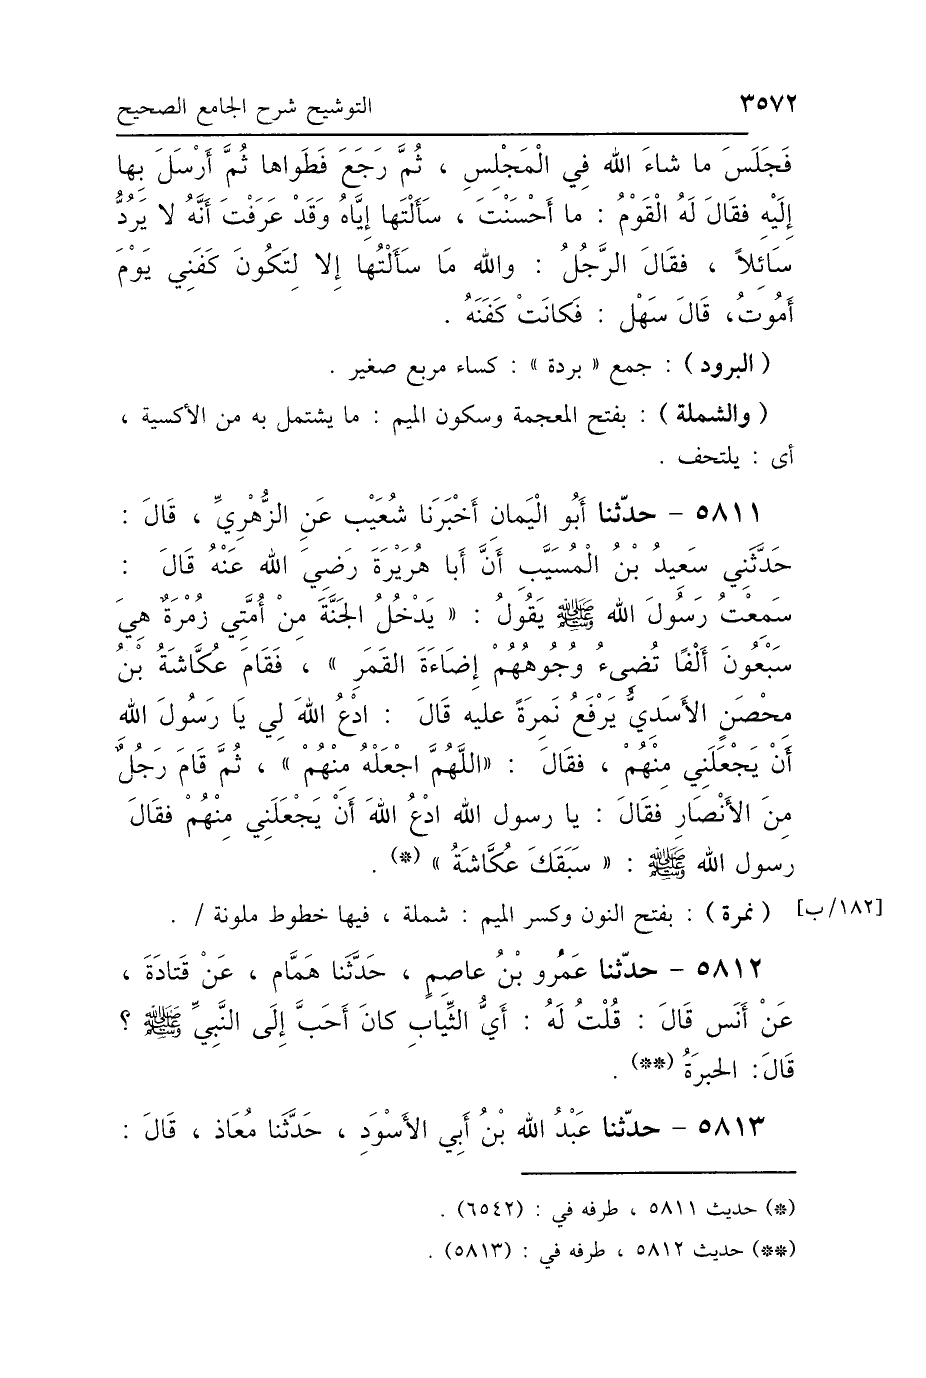 ٣٥٧٢ التوشيح شرح الجامع الصحيح
فَجَلَسَ ما شاءَ الله فِي الْمَجْلِسِ ، ثُمَّ رَجَعَ فَطَواها ثُمَّ أَرْسَلَ بِها
إِلَيْهِ فقَالَ لَهُ الْقَوْمُ : ما أَحْسَنْتَ ، سَأَلْتَها إِيَّاهُ وَقَدْ عَرَفْتَ أَنَّهُ لا يَرُدُّ
سَائِلاً ، فقَالَ الرَّجُلُ : والله مَا سَأَلْتُها إِلا لِتَكُونَ كَفَنِي يَوْمَ
أَمُوتُ، قَالَ سَهْل : فَكانَتْ كَفَنَهُ .
( البرود ) : جمع « بردة » : كساء مربع صغير .
( والشملة ) : بفتح المعجمة وسكون الميم : ما يشتمل به من الأكسية ،
أى : يلتحف .
٥٨١١ - حدّثنا أَبُو الْيَمان أَخْبَرَنَا شُعَيْب عَنِ الزُّهْرِيِّ ، قَالَ :
حَدَّثَنِي سَعِيدُ بْنُ المُسَيَّبِ أَنَّ أَبا هُرَيْرَةَ رَضِيَ الله عَنْهُ قَالَ :
سَمِعْتُ رَسُولَ الله ﷺ يَقُولُ : « يَدْخُلُ الجَنَّةَ مِنْ أُمَّتِي زُمْرَةٌ هِيَ
سَبْعُونَ أَلْفًا تُضِيءُ وُجُوهُهُمْ إِضَاءَةَ القَمَرِ » ، فَقَامَ عُكَّاشَةُ بْنُ
مِحْصَنٍ الأَسَدِيُّ يَرْفَعُ نَمِرَةً عليه قَالَ : ادْعُ اللهَ لِي يَا رَسُولَ اللهِ
أَنْ يَجْعَلَنِي مِنْهُمْ ، فقَالَ : «اللَّهُمَّ اجْعَلْهُ مِنْهُمْ » ، ثُمَّ قَامَ رَجُلٌ
مِنَ الأَنْصَارِ فقَالَ : يا رسول الله ادْعُ اللهَ أَنْ يَجْعَلَنِي مِنْهُمْ فقَالَ
رسول الله ﷺ : « سَبَقَكَ عُكَّاشَةُ » (*) .
( نمرة ) : بفتح النون وكسر الميم : شملة ، فيها خطوط ملونة / . [١٨٢/ب]
٥٨١٢ - حدّثنا عَمْرو بْنُ عاصِمٍ ، حَدَّثَنا هَمَّام ، عَنْ قَتادَةَ ،
عَنْ أَنَس قَالَ : قُلْتُ لَهُ : أَيُّ الثِّيابِ كانَ أَحَبَّ إِلَى النَّبِيِّ ﷺ ؟
قَالَ: الحِبَرَةُ (**) .
٥٨١٣ - حدّثنا عَبْدُ الله بْنُ أَبِي الأَسْوَدِ ، حَدَّثَنا مُعَاذ ، قَالَ :
(*) حديث ٥٨١١ ، طرفه في : (٦٥٤٢) .
(**) حديث ٥٨١٢ ، طرفه في : (٥٨١٣) .